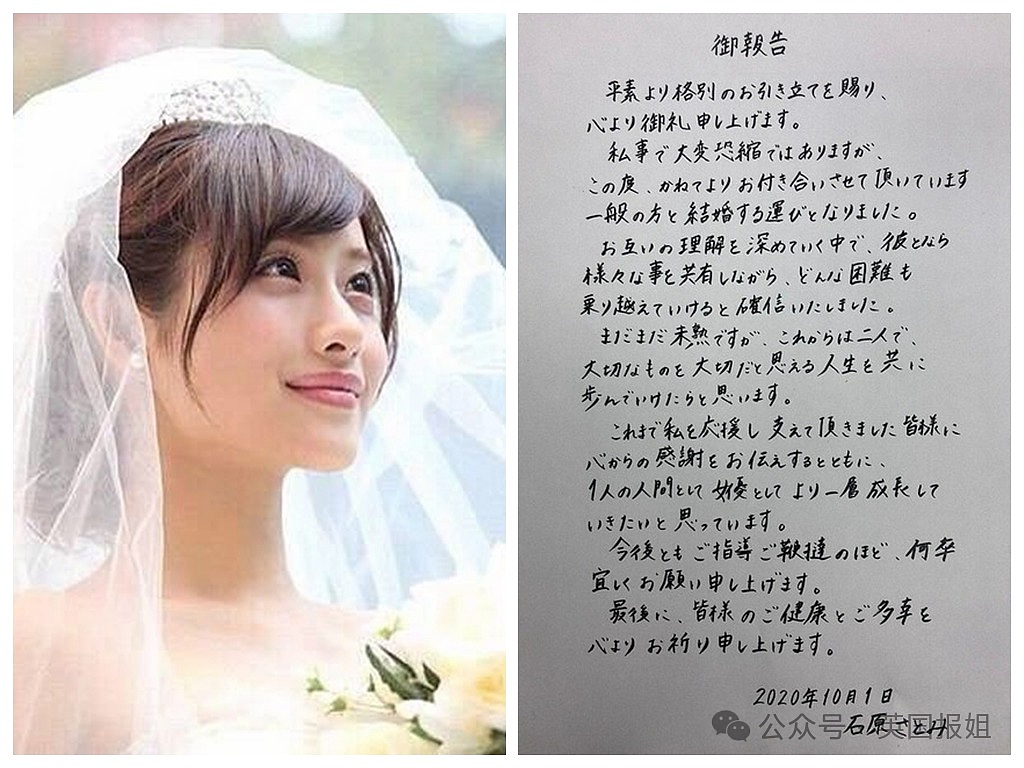 御報告
平素より格別のお引き立てを賜り、
心より御礼申し上げます。
私事で大変恐縮ではありますが、
この度、かねてよりお付き合いさせて頂いています
一般の方と結婚する運びとなりました。
お互いの理解を深めていく中で、彼となら
様々な事を共有しながら、どんな困難も
乗り越えていけると確信いたしました。
まだまだ未熟ですが、これからは二人で、
大切なものを大切だと思える人生を共に
歩んでいけたらと思います。
これまで私を応援し支えて頂きました皆様に
心からの感謝をお伝えするとともに、
1人の人間として女優としてより一層成長して
いきたいと思っています。
今後ともご指導ご鞭撻のほど、何卒
宜しくお願い申し上げます。
最後に、皆様のご健康とご多幸を
心よりお祈り申し上げます。
2020年10月1日
石原さとみ
公众号 英国报姐